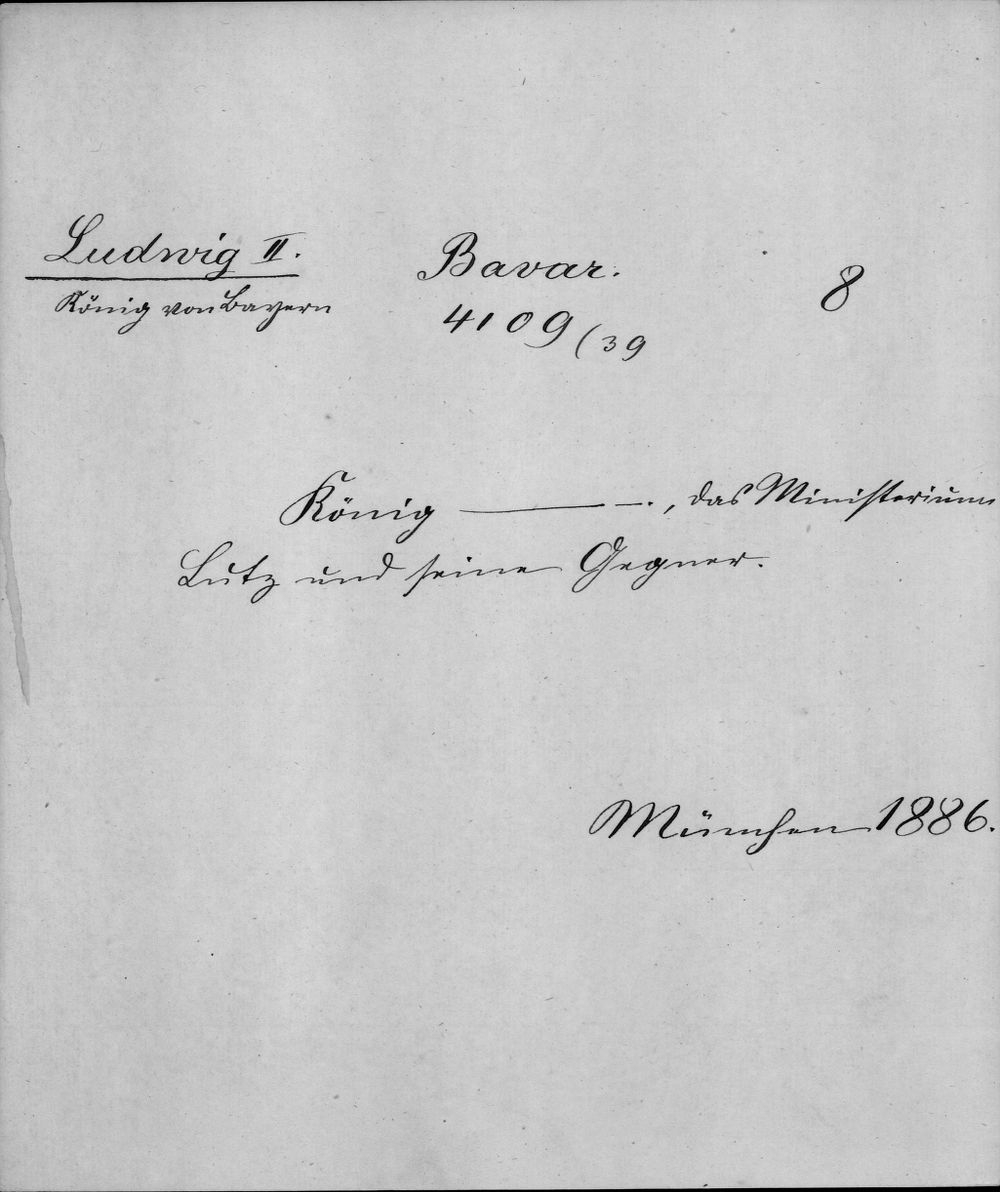 Ludwig II.
König von Bayern
Bavar.
4109 (39
8
König ——— –., das Ministerium
Lutz und seine Gegner.
München 1886.